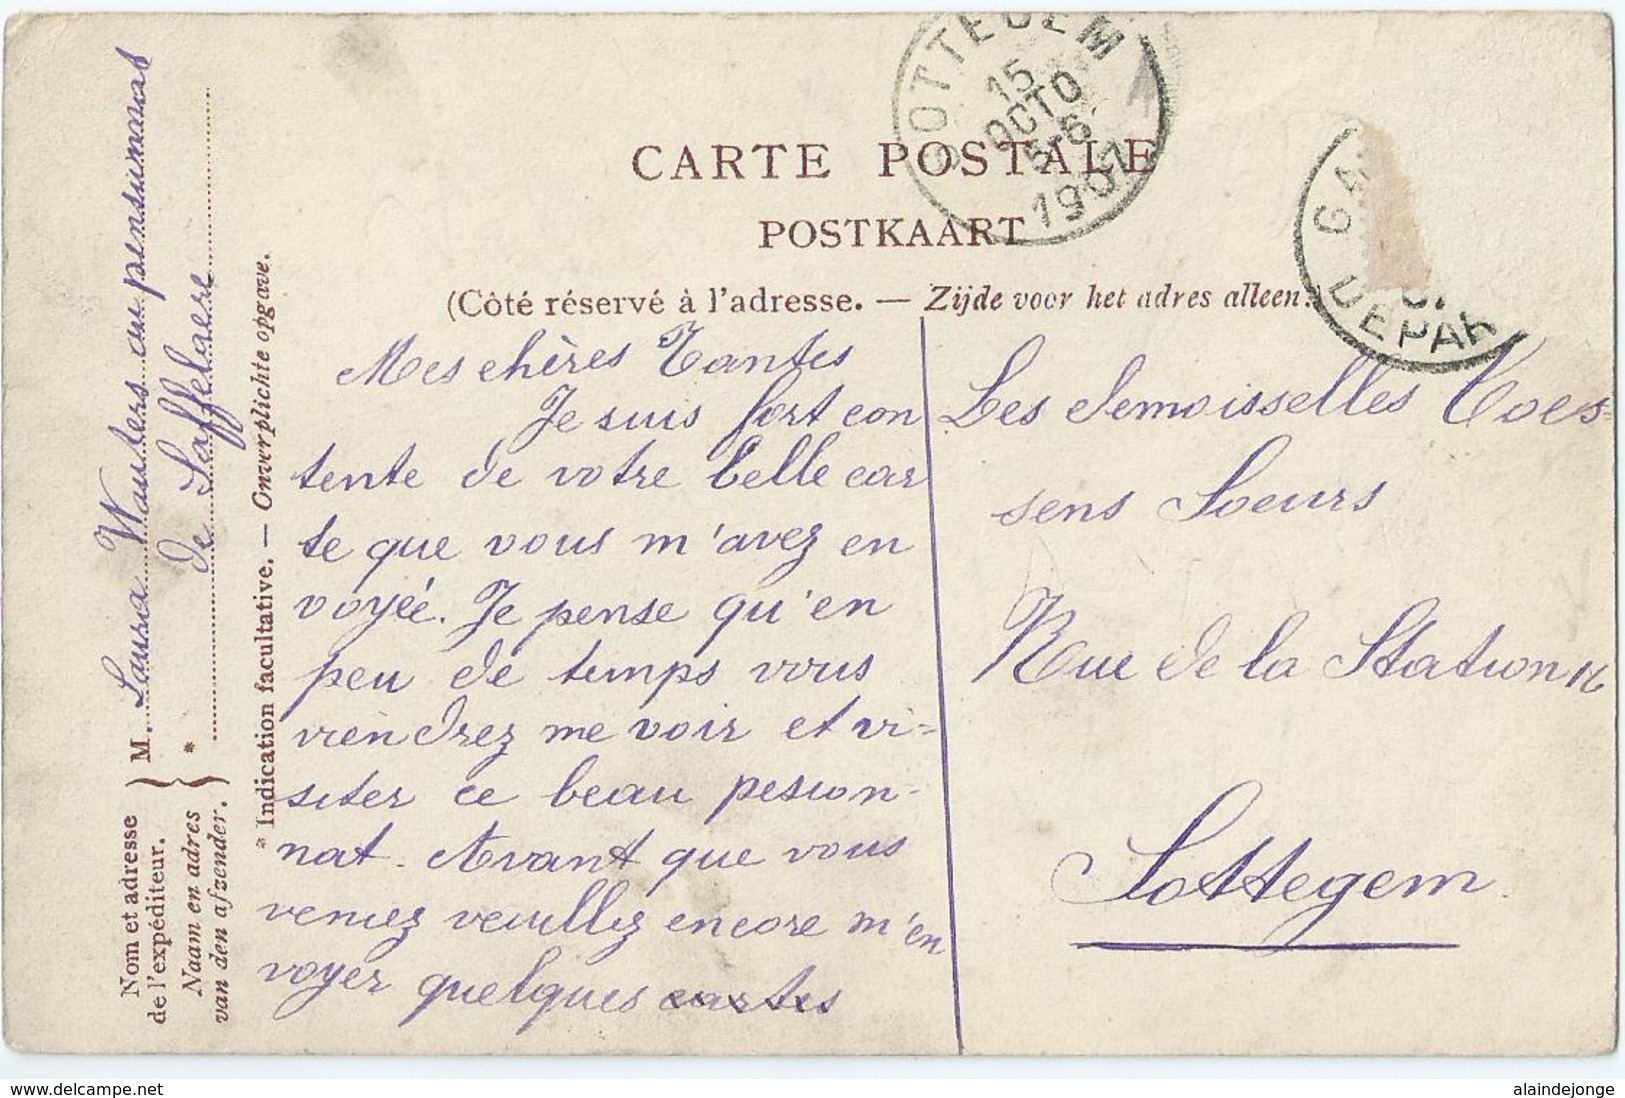 SOTTEGEM
15
OCTO
5-6
1907
CARTE POSTALE
POSTKAART
(Côté réservé à l'adresse. — Zijde voor het adres alleen.
DEPAR
Nom et adresse
de l'expéditeur.
Naam en adres
van den afzender.
M. Laura Wauters au pensionnat
* de Saffelaere
* Indication facultative. — Onverplichte opgave.
Mes chères Tantes
Je suis fort con
tente de votre belle car
te que vous m'avez en
voyée. Je pense qu'en
peu de temps vous
viendrez me voir et vi=
siter ce beau pesion-
nat. Avant que vous
veniez veuillez encore m'en
voyer quelques cartes
Les demoisselles Coes=
sens Soeurs
Rue de la Station 16
Sottegem.
www.delcampe.net
alaindejonge